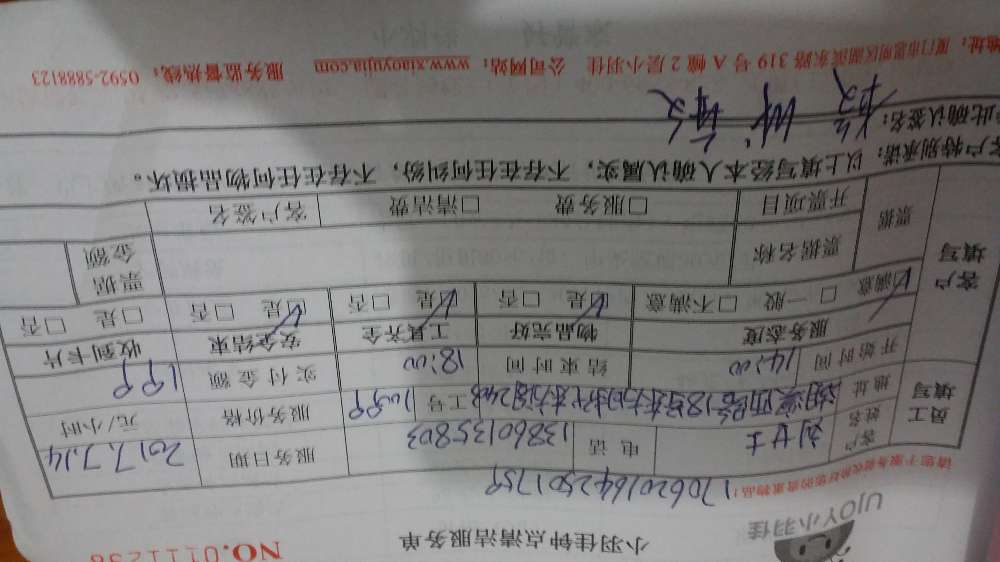 UJOY小羽佳
小羽佳钟点清洁服务单
NO.0111258
1706201642501759
员工填写 客户姓名 刘女士 电话 13860135803 服务日期 2017.7.14
地址 工号 1109 服务价格 元/小时
开始时间 14:00 结束时间 18:00 实付金额 199
客户填写 服务态度 物品完好 工具齐全 安全结束 收到卡片
☑满意 □一般 □不满意 ☑是 □否 ☑是 □否 ☑是 □否 □是 □否
票据 票据名称 票据金额
开票项目 □服务费 □清洁费 客户签名
客户特别承诺：以上填写经本人确认属实，不存在任何纠纷，不存在任何物品损坏。
此确认签名：
地址：厦门市思明区湖滨东路319号A幢2层小羽佳 公司网站：www.xiaoyujia.com 服务监督热线：0592-5888123